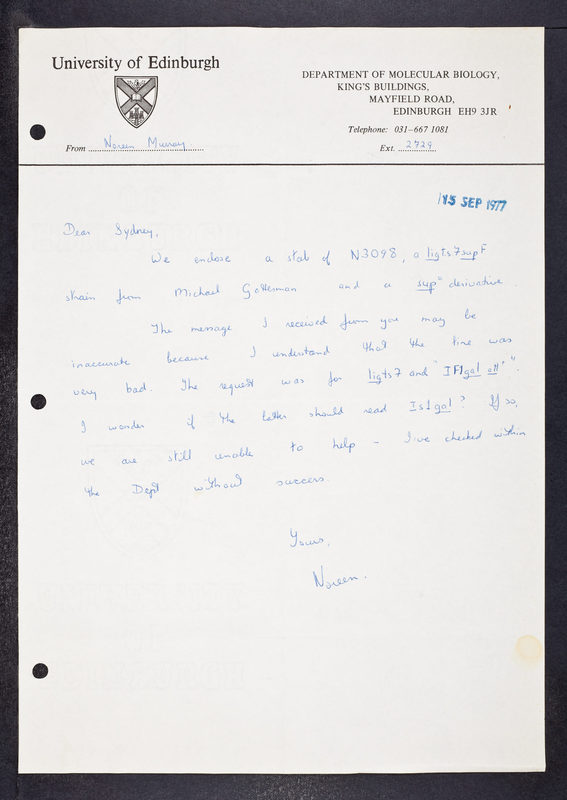 University of Edinburgh
DEPARTMENT OF MOLECULAR BIOLOGY,
KING'S BUILDINGS,
MAYFIELD ROAD,
EDINBURGH EH9 3JR
Telephone: 031-667 1081
From Noreen Murray
Ext. 2729
15 SEP 1977
Dear Sydney,
We enclose a stab of N3098, a ligts7supF
strain from Michael Gottesman and a sup° derivative.
The message I received from you may be
inaccurate because I understand that the line was
very bad. The request was for ligts7 and "IF1gal att".
I wonder if the latter should read Is1gal? If so,
we are still unable to help - I've checked within
the Dept without success.
Yours,
Noreen.